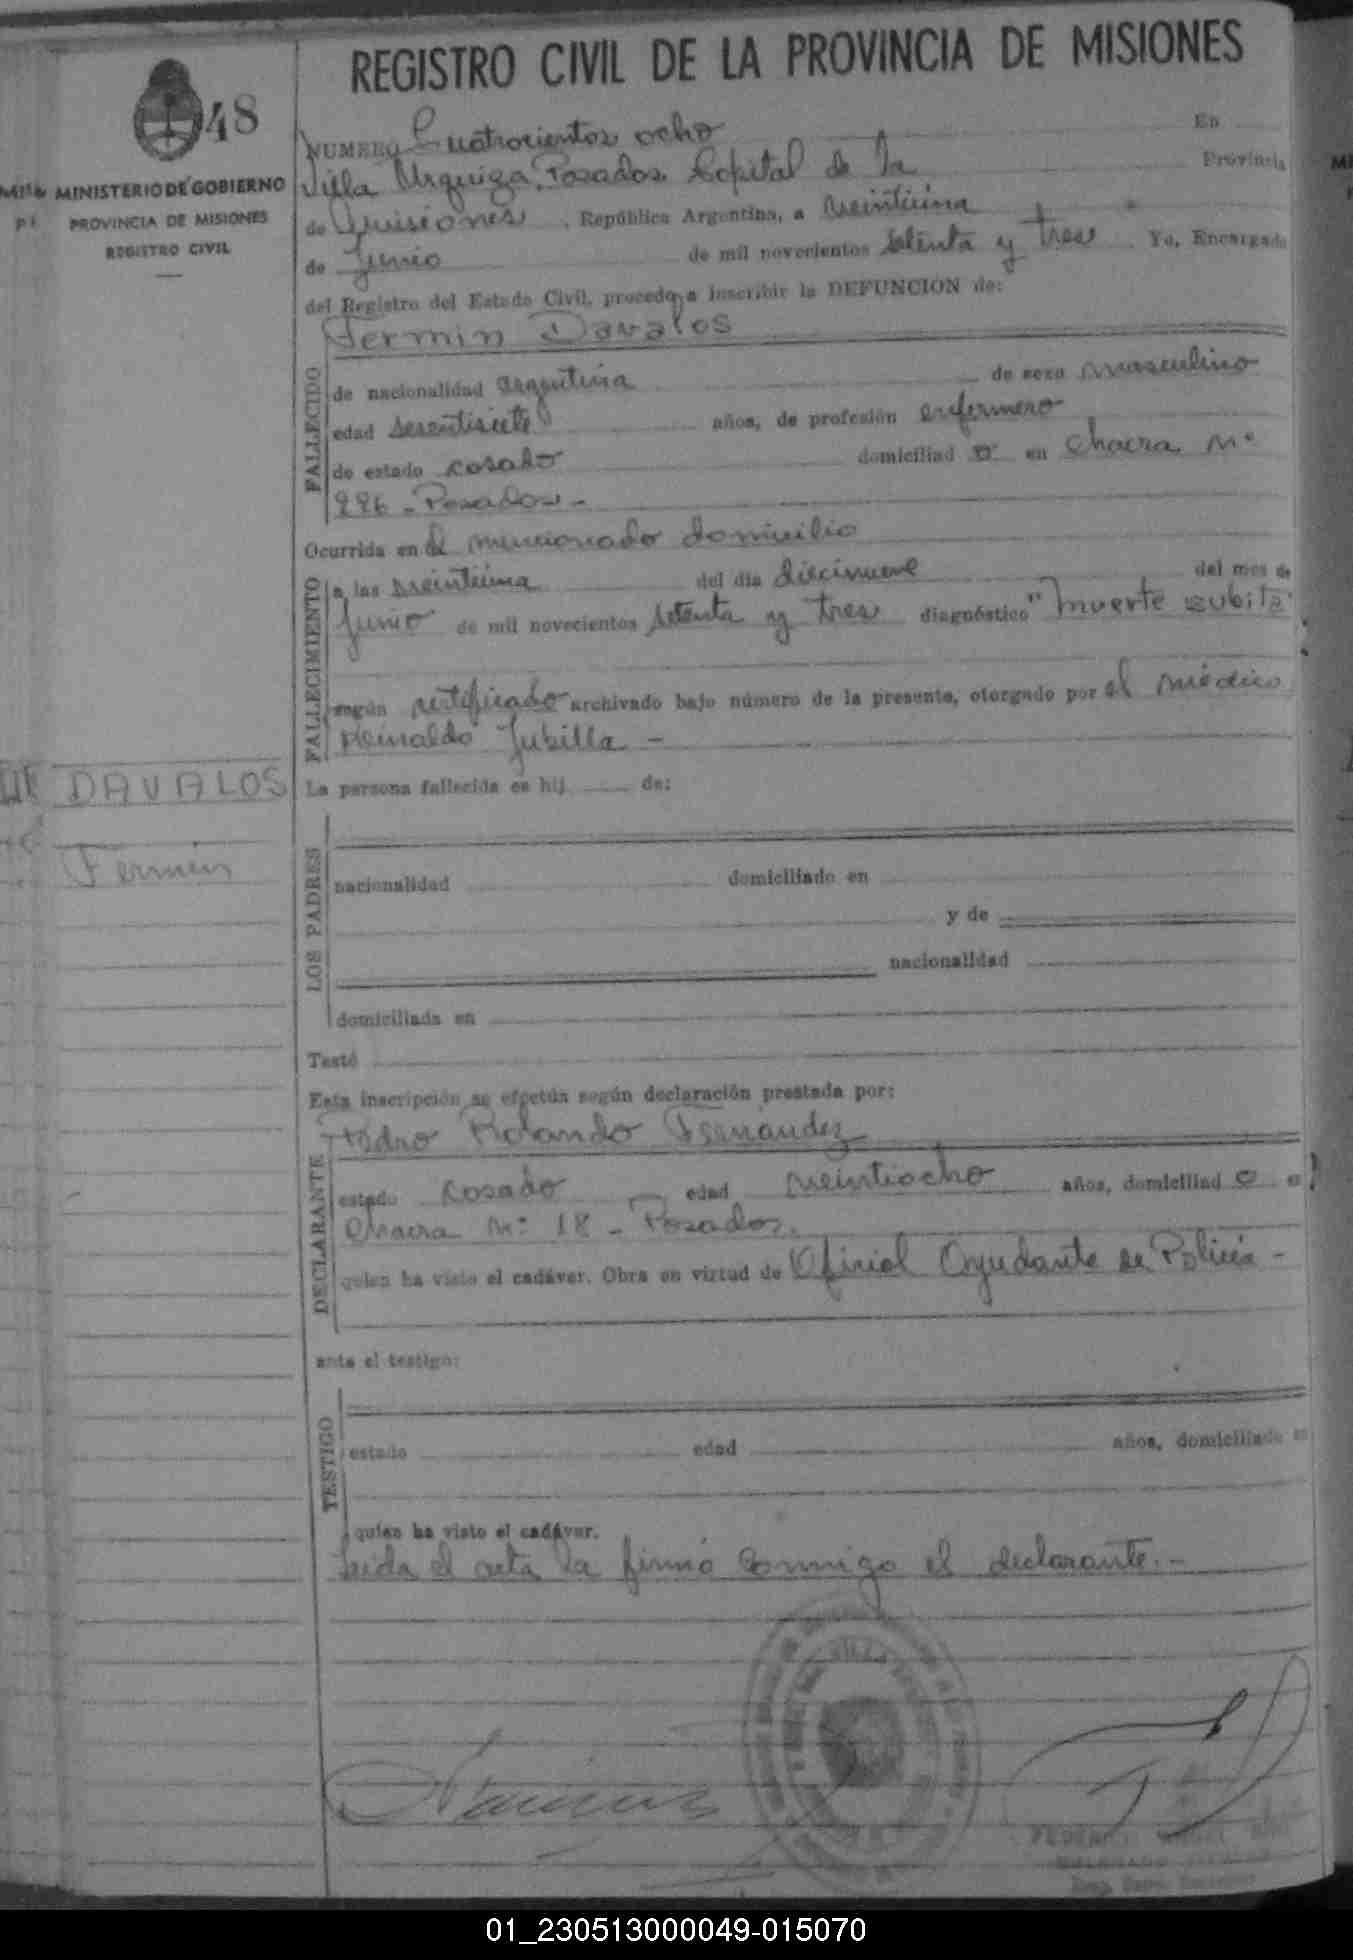 REGISTRO CIVIL DE LA PROVINCIA DE MISIONES
48
MINISTERIO DE GOBIERNO
PROVINCIA DE MISIONES
REGISTRO CIVIL
NUMERO Cuatrocientos ocho En
Villa Urquiza, Posadas Capital de la Provincia
de Misiones, República Argentina, a veintiuna
de Junio de mil novecientos setenta y tres Yo, Encargado
del Registro del Estado Civil, procedo a inscribir la DEFUNCION de:
Fermin Davalos
FALLECIDO
de nacionalidad argentina de sexo masculino
edad sesentisiete años, de profesión enfermero
de estado casado domiciliad o en Chacra Nº
226 - Posadas -
Ocurrida en el mencionado domicilio
FALLECIMIENTO
a las veintiuna del día diecinueve del mes de
Junio de mil novecientos setenta y tres diagnóstico "muerte subita"
según certificado archivado bajo número de la presente, otorgado por el médico
Reinaldo Jubilla -
DAVALOS
Fermin
La persona fallecida es hij de:
LOS PADRES
nacionalidad domiciliado en
y de
nacionalidad
domiciliada en
Testó
Esta inscripción se efectúa según declaración prestada por:
Pedro Rolando Fernandez
DECLARANTE
estado casado edad veintiocho años, domiciliad o e
Chacra Nº 18 - Posadas.
quien ha visto el cadáver. Obra en virtud de Oficial Ayudante de Policía -
ante el testigo:
TESTIGO
estado edad años, domiciliado en
quien ha visto el cadáver.
Leida el acta la firmó conmigo el declarante. -
01_230513000049-015070